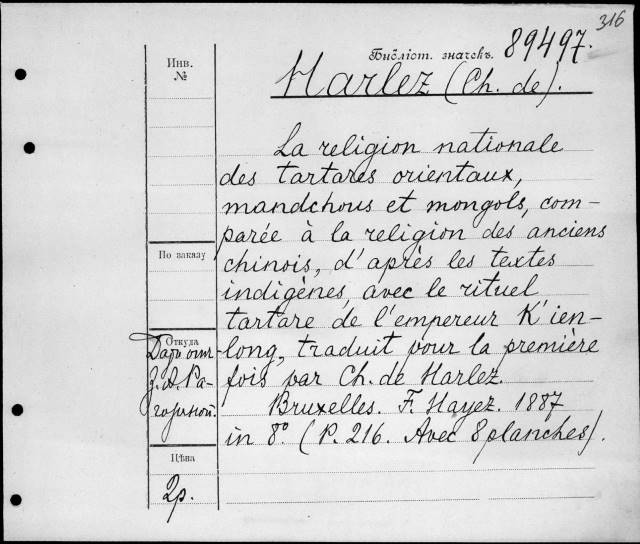 316
Инв.
№
Библіот. значекъ. 89497.
Harlez (Ch. de).
La religion nationale
des tartares orientaux,
mandchous et mongols, com-
parée à la religion des anciens
chinois, d'après les textes
indigènes, avec le rituel
tartare de l'empereur K'ien-
long, traduit pour la première
fois par Ch. de Harlez.
Bruxelles. F. Hayez. 1887
in 8º. (P. 216. Avec 8 planches).
По заказу
Откуда
Даръ отъ
З. А. Ра-
гозиной.
Цѣна
2р.